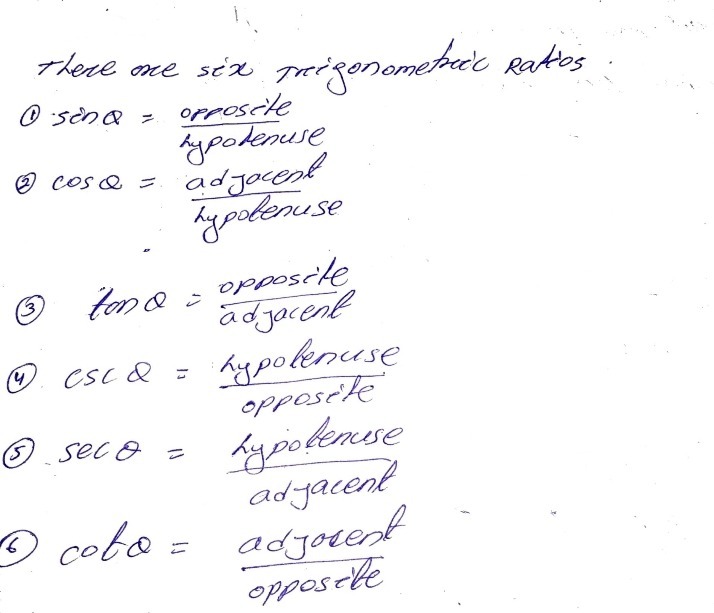 There are six Trigonometric Ratios.
① sinθ = opposite
hypotenuse
② cosθ = adjacent
hypotenuse
③ tanθ = opposite
adjacent
④ cscθ = hypotenuse
opposite
⑤ secθ = hypotenuse
adjacent
⑥ cotθ = adjacent
opposite